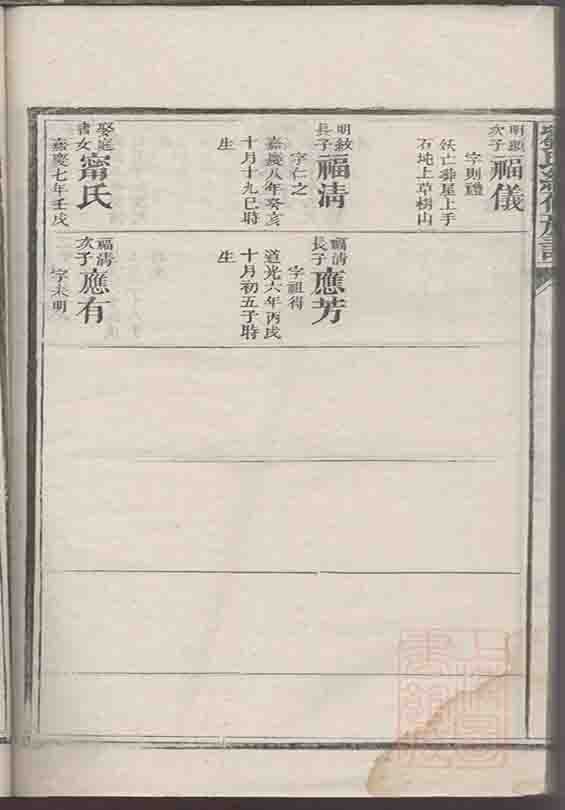 明顯
次子
福儀
字則禮
殀亡葬屋上手
石坉上草樹山
明紋
長子
福清
字仁之
嘉慶八年癸亥
十月十九巳時
生
娶庭
書女
甯氏
嘉慶七年壬戌
福清
長子
應芳
字祖得
道光六年丙戌
十月初五子時
生
福清
次子
應有
字未明